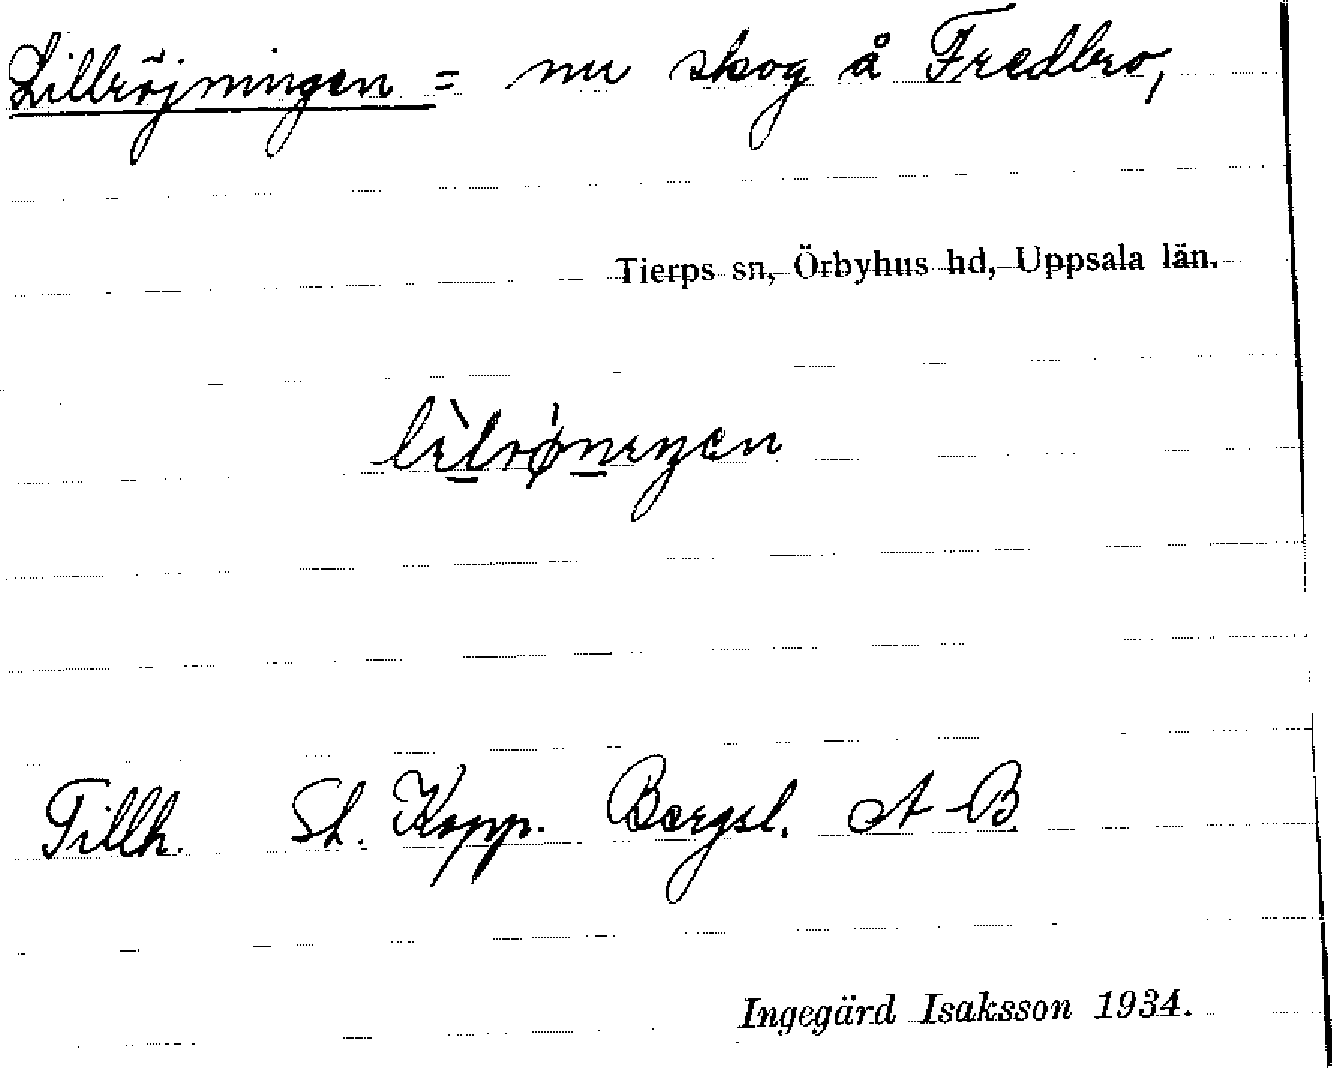 Lillröjningen = nu skog å Fredbro,
Tierps sn, Örbyhus hd, Uppsala län.
lìlrø̀nıŋen
Tillh. St. Kopp. Bergsl. A-B
Ingegärd Isaksson 1934.